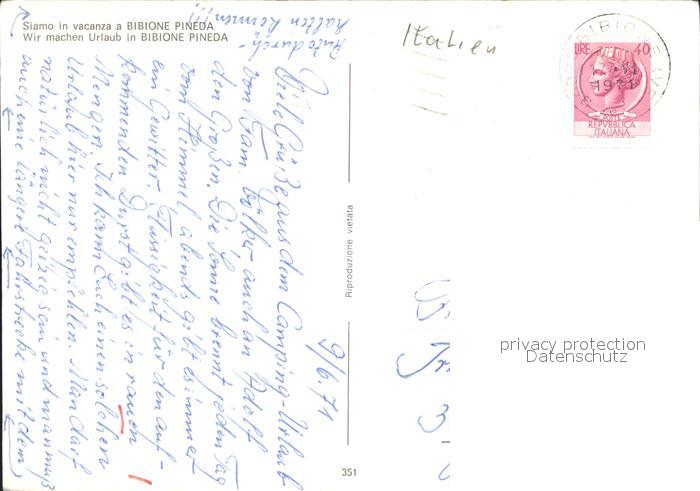 Siamo in vacanza a BIBIONE PINEDA
Wir machen Urlaub in BIBIONE PINEDA
9/6.71
Viele Grüße aus dem Camping-Urlaub
von Fam. auch an Adolf
den Großen. Die Sonne brennt jeden Tag
vom Himmel abends gibt es immer
ein Gewitter. Flüssigkeit für den auf-
kommenden Durst gibt es in rauen
Mengen. Ich kann Euch einen solchen
Urlaub hier nur empfehlen. Man darf
natürlich nicht geizig sein und man muß
auch eine längere Fahrstrecke mit dem
Auto durch-
halten können!!!
Riproduzione vietata
351
Italien
BIBIONE
1971
LIRE 40
POSTE
REPVBBLICA
ITALIANA
privacy protection
Datenschutz